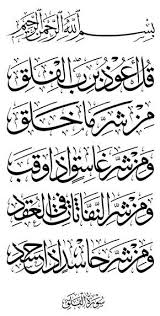 بسم الله الرحمن الرحيم
قل أعوذ برب الفلق
من شر ما خلق
ومن شر غاسق إذا وقب
ومن شر النفاثات في العقد
ومن شر حاسد إذا حسد
سورة الفلق